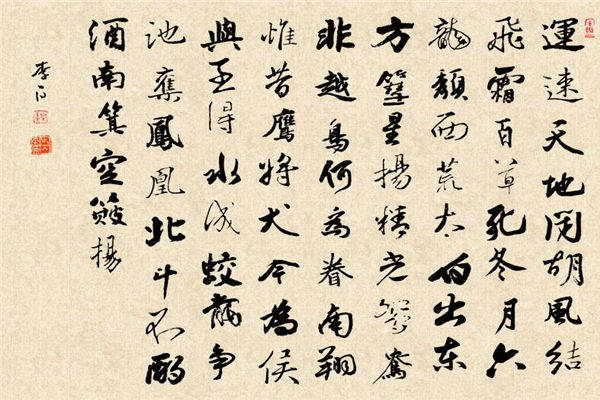 運速天地閉胡風結
飛霜百草死冬月六
龍頹西荒太白出東
方篲星揚精光鴛鴦
非越鳥何為眷南翔
惟昔鷹將犬今為侯
與王得水成蛟龍爭
池奪鳳凰北斗不酌
酒南箕空簸揚
李白